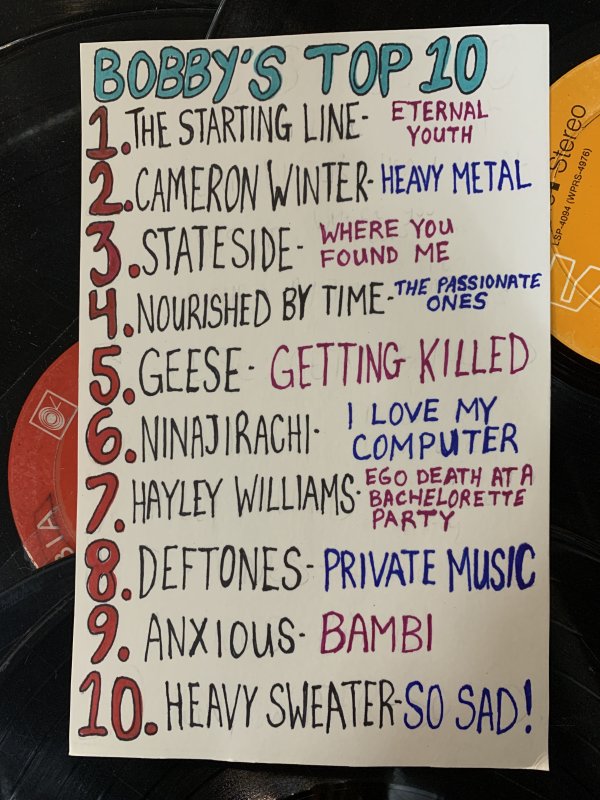 BOBBY'S TOP 10
1. THE STARTING LINE- ETERNAL
YOUTH
2. CAMERON WINTER- HEAVY METAL
3. STATESIDE- WHERE YOU
FOUND ME
4. NOURISHED BY TIME- THE PASSIONATE
ONES
5. GEESE- GETTING KILLED
6. NINAJIRACHI- I LOVE MY
COMPUTER
7. HAYLEY WILLIAMS- EGO DEATH AT A
BACHELORETTE
PARTY
8. DEFTONES- PRIVATE MUSIC
9. ANXIOUS- BAMBI
10. HEAVY SWEATER- SO SAD!
Stereo
LSP-4094 (WPRS-4976)